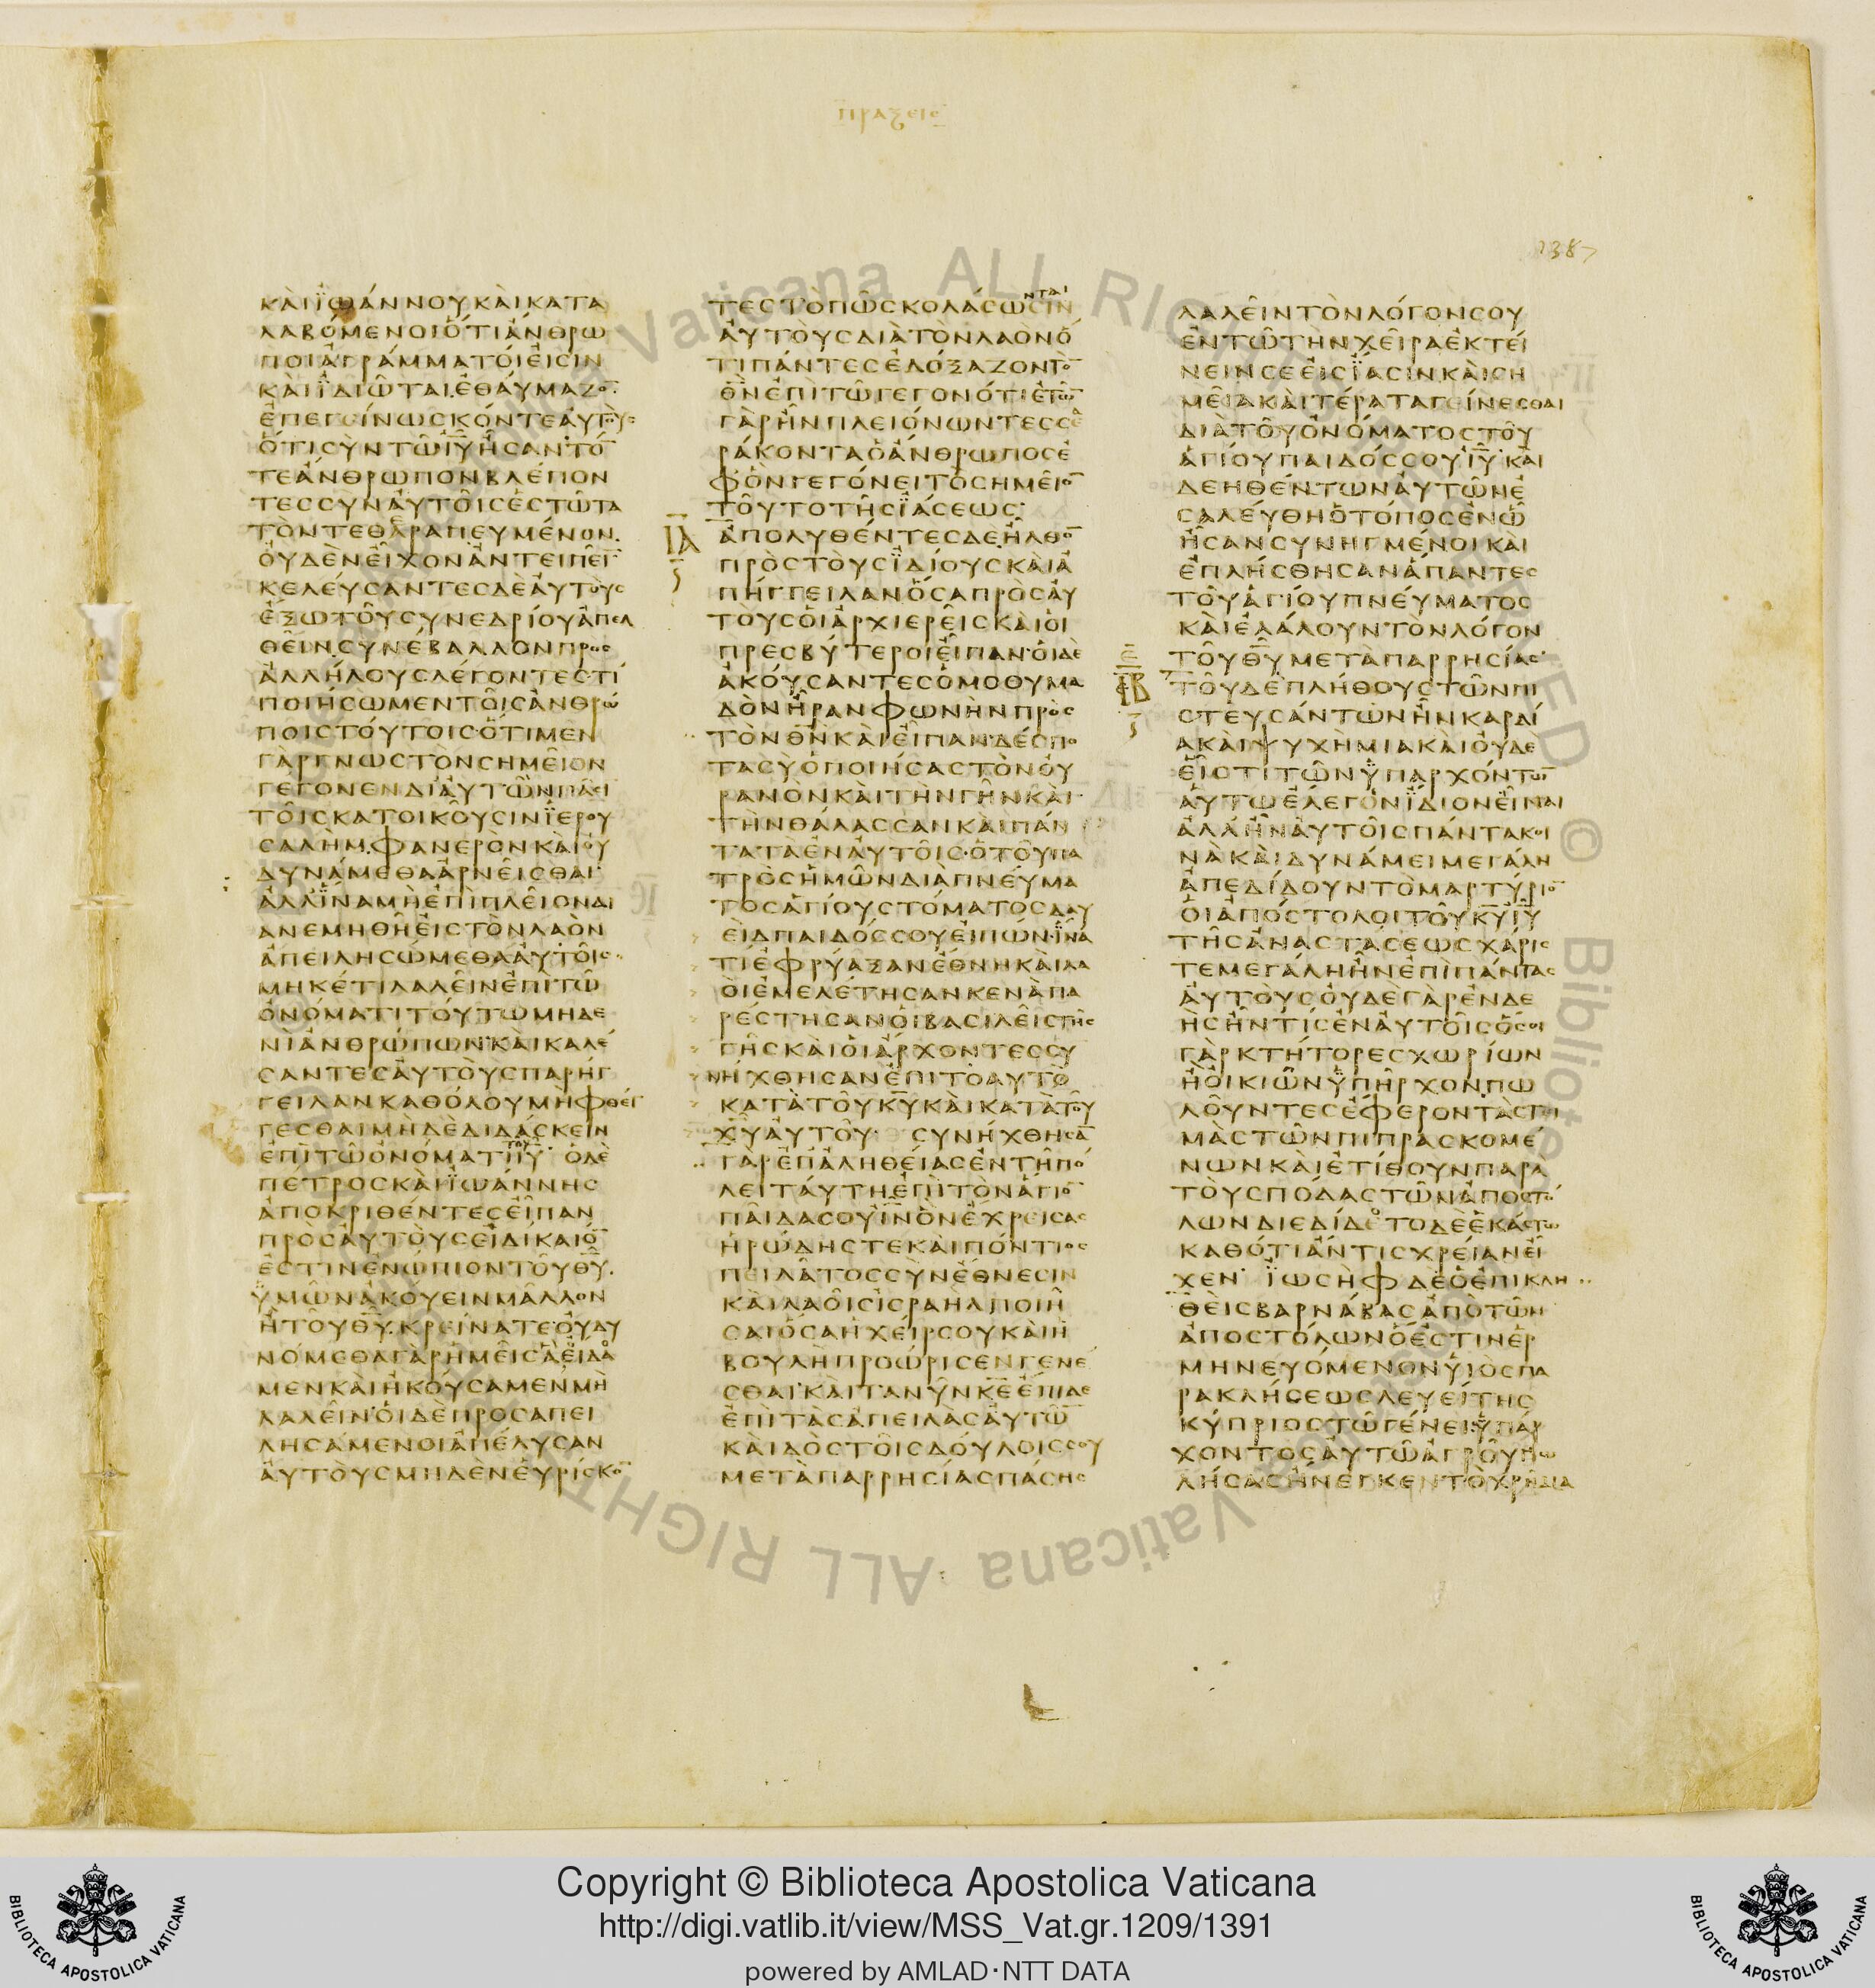 πραξεισ
1387
ΚΑΙΪΩΑΝΝΟΥΚΑΙΚΑΤΑ
ΛΑΒΟΜΕΝΟΙΟΤΙΑΝΘΡΩ
ΠΟΙΑΓΡΑΜΜΑΤΟΙΕΙCΙΝ
ΚΑΙΪΔΙΩΤΑΙΕΘΑΥΜΑΖΟ¯
ΕΠΕΓΕΙΝΩCΚΟΝΤΕΑΥΤΟΥC
ΟΤΙCΥΝΤΩΙΥΗCΑΝΤΟ¯
ΤΕΑΝΘΡΩΠΟΝΒΛΕΠΟΝ
ΤΕCCΥΝΑΥΤΟΙCΕCΤΩΤΑ
ΤΟΝΤΕΘΑΡΑΠΕΥΜΕΝΟΝ
ΟΥΔΕΝΕΙΧΟΝΑΝΤΕΙΠΕΙ¯
ΚΕΛΕΥCΑΝΤΕCΔΕΑΥΤΟΥC
ΕΞΩΤΟΥCΥΝΕΔΡΙΟΥΑΠΕΛ
ΘΕΙΝCΥΝΕΒΑΛΛΟΝΠΡΟC
ΑΛΛΗΛΟΥCΛΕΓΟΝΤΕCΤΙ
ΠΟΙΗCΩΜΕΝΤΟΙCΑΝΘΡΩ
ΠΟΙCΤΟΥΤΟΙCΟΤΙΜΕΝ
ΓΑΡΓΝΩCΤΟΝCΗΜΕΙΟΝ
ΓΕΓΟΝΕΝΔΙΑΥΤΩΝΠΑCΙ
ΤΟΙCΚΑΤΟΙΚΟΥCΙΝΪΕΡΟΥ
CΑΛΗΜΦΑΝΕΡΟΝΚΑΙΟΥ
ΔΥΝΑΜΕΘΑΑΡΝΕΙCΘΑΙ
ΑΛΛΪΝΑΜΗΕΠΙΠΛΕΙΟΝΔΙ
ΑΝΕΜΗΘΗΕΙCΤΟΝΛΑΟΝ
ΑΠΕΙΛΗCΩΜΕΘΑΑΥΤΟΙC
ΜΗΚΕΤΙΛΑΛΕΙΝΕΠΙΤΩ
ΟΝΟΜΑΤΙΤΟΥΤΩΜΗΔΕ
ΝΙΑΝΘΡΩΠΩΝΚΑΙΚΑΛΕ
CΑΝΤΕCΑΥΤΟΥCΠΑΡΗΓ
ΓΕΙΛΑΝΚΑΘΟΛΟΥΜΗΦΘΕΓ
ΓΕCΘΑΙΜΗΔΕΔΙΔΑCΚΕΙΝ
ΕΠΙΤΩΟΝΟΜΑΤΙτουΙΥ ΟΔΕ
ΠΕΤΡΟCΚΑΙΪΩΑΝΝΗC
ΑΠΟΚΡΙΘΕΝΤΕCΕΙΠΑΝ
ΠΡΟCΑΥΤΟΥCΕΙΔΙΚΑΙΟ¯
ΕCΤΙΝΕΝΩΠΙΟΝΤΟΥΘΥ
ΫΜΩΝΑΚΟΥΕΙΝΜΑΛΛΟΝ
ΗΤΟΥΘΥΚΡΕΙΝΑΤΕΟΥΔΥ
ΝΟΜΕΘΑΓΑΡΗΜΕΙCΑΕΙΔΑ
ΜΕΝΚΑΙΗΚΟΥCΑΜΕΝΜΗ
ΛΑΛΕΙΝΟΙΔΕΠΡΟCΑΠΕΙ
ΛΗCΑΜΕΝΟΙΑΠΕΛΥCΑΝ
ΑΥΤΟΥCΜΗΔΕΝΕΥΡΙCΚΟ¯
ΤΕCΤΟΠΩCΚΟΛΑCΩCΙΝνται
ΑΥΤΟΥCΔΙΑΤΟΝΛΑΟΝΟ
ΤΙΠΑΝΤΕCΕΔΟΞΑΖΟΝΤΟ¯
ΘΝΕΠΙΤΩΓΕΓΟΝΟΤΙΕΤΩ¯
ΓΑΡΗΝΠΛΕΙΟΝΩΝΤΕCCΕ
ΡΑΚΟΝΤΑΟΑΝΘΡΩΠΟCΕ
ΦΟΝΓΕΓΟΝΕΙΤΟCΗΜΕΙΟ¯
ΤΟΥΤΟΤΗCΪΑCΕΩC
ΙΑ
ΑΠΟΛΥΘΕΝΤΕCΔΕΗΛΘΟ¯
ΠΡΟCΤΟΥCΪΔΙΟΥCΚΑΙΑ
ΠΗΓΓΕΙΛΑΝΟCΑΠΡΟCΑΥ
ΤΟΥCΟΙΑΡΧΙΕΡΕΙCΚΑΙΟΙ
ΠΡΕCΒΥΤΕΡΟΙΕΙΠΑΝΟΙΔΕ
ΑΚΟΥCΑΝΤΕCΟΜΟΘΥΜΑ
ΔΟΝΗΡΑΝΦΩΝΗΝΠΡΟC
ΤΟΝΘΝΚΑΙΕΙΠΑΝΔΕCΠΟ
ΤΑCΥΟΠΟΙΗCΑCΤΟΝΟΥ
ΡΑΝΟΝΚΑΙΤΗΝΓΗΝΚΑΙ
ΤΗΝΘΑΛΑCCΑΝΚΑΙΠΑΝ
ΤΑΤΑΕΝΑΥΤΟΙCΟΤΟΥΠΑ
ΤΡΟCΗΜΩΝΔΙΑΠΝΕΥΜΑ
ΤΟCΑΓΙΟΥCΤΟΜΑΤΟCΔΑΥ
ΕΙΔΠΑΙΔΟCCΟΥΕΙΠΩΝΪΝΑ
ΤΙΕΦΡΥΑΞΑΝΕΘΝΗΚΑΙΛΑ
ΟΙΕΜΕΛΕΤΗCΑΝΚΕΝΑΠΑ
ΡΕCΤΗCΑΝΟΙΒΑCΙΛΕΙCΤΗC
ΓΗCΚΑΙΟΙΑΡΧΟΝΤΕCCΥ
ΝΗΧΘΗCΑΝΕΠΙΤΟΑΥΤΟ
ΚΑΤΑΤΟΥΚΥΚΑΙΚΑΤΑΤΟΥ
ΧΥΑΥΤΟΥ CΥΝΗΧΘΗCΑ¯
ΓΑΡΕΠΑΛΗΘΕΙΑCΕΝΤΗΠΟ
ΛΕΙΤΑΥΤΗΕΠΙΤΟΝΑΓΙΟ¯
ΠΑΙΔΑCΟΥΙΝΟΝΕΧΡΕΙCΑC
ΗΡΩΔΗCΤΕΚΑΙΠΟΝΤΙΟC
ΠΕΙΛΑΤΟCCΥΝΕΘΝΕCΙΝ
ΚΑΙΛΑΟΙCΙCΡΑΗΛΠΟΙΗ
CΑΙΟCΑΗΧΕΙΡCΟΥΚΑΙΗ
ΒΟΥΛΗΠΡΟΩΡΙCΕΝΓΕΝΕ
CΘΑΙΚΑΙΤΑΝΥΝΚΕΕΠΙΔΕ
ΕΠΙΤΑCΑΠΕΙΛΑCΑΥΤΩ¯
ΚΑΙΔΟCΤΟΙCΔΟΥΛΟΙCCΟΥ
ΜΕΤΑΠΑΡΡΗCΙΑCΠΑCΗC
ΛΑΛΕΙΝΤΟΝΛΟΓΟΝCΟΥ
ΕΝΤΩΤΗΝΧΕΙΡΑΕΚΤΕΙ
ΝΕΙΝCΕΕΙCΪΑCΙΝΚΑΙCΗ
ΜΕΙΑΚΑΙΤΕΡΑΤΑΓΕΙΝΕCΘΑΙ
ΔΙΑΤΟΥΟΝΟΜΑΤΟCΤΟΥ
ΑΓΙΟΥΠΑΙΔΟCCΟΥΙΥΚΑΙ
ΔΕΗΘΕΝΤΩΝΑΥΤΩΝΕ
CΑΛΕΥΘΗΟΤΟΠΟCΕΝΩ
ΗCΑΝCΥΝΗΓΜΕΝΟΙΚΑΙ
ΕΠΛΗCΘΗCΑΝΑΠΑΝΤΕC
ΤΟΥΑΓΙΟΥΠΝΕΥΜΑΤΟC
ΚΑΙΕΛΑΛΟΥΝΤΟΝΛΟΓΟΝ
ΤΟΥΘΥΜΕΤΑΠΑΡΡΗCΙΑC
Ε
ΙΒ
ΤΟΥΔΕΠΛΗΘΟΥCΤΩΝΠΙ
CΤΕΥCΑΝΤΩΝΗΝΚΑΡΔΙ
ΑΚΑΙΨΥΧΗΜΙΑΚΑΙΟΥΔΕ
ΕΙCΤΙΤΩΝΫΠΑΡΧΟΝΤΩ¯
ΑΥΤΩΕΛΕΓΟΝΪΔΙΟΝΕΙΝΑΙ
ΑΛΛΗΝΑΥΤΟΙCΠΑΝΤΑΚΟΙ
ΝΑΚΑΙΔΥΝΑΜΕΙΜΕΓΑΛΗ
ΑΠΕΔΙΔΟΥΝΤΟΜΑΡΤΥΡΙΟ¯
ΟΙΑΠΟCΤΟΛΟΙΤΟΥΚΥΙΥ
ΤΗCΑΝΑCΤΑCΕΩCΧΑΡΙC
ΤΕΜΕΓΑΛΗΗΝΕΠΙΠΑΝΤΑC
ΑΥΤΟΥCΟΥΔΕΓΑΡΕΝΔΕ
ΗCΗΝΤΙCΕΝΑΥΤΟΙCΟCΟΙ
ΓΑΡΚΤΗΤΟΡΕCΧΩΡΙΩΝ
ΗΟΙΚΙΩΝΫΠΗΡΧΟΝΠΩ
ΛΟΥΝΤΕCΕΦΕΡΟΝΤΑCΤΙ
ΜΑCΤΩΝΠΙΠΡΑCΚΟΜΕ
ΝΩΝΚΑΙΕΤΙΘΟΥΝΠΑΡΑ
ΤΟΥCΠΟΔΑCΤΩΝΑΠΟCΤΟ
ΛΩΝΔΙΕΔΙΔΕΤΟΔΕΕΚΑCΤΩ
ΚΑΘΟΤΙΑΝΤΙCΧΡΕΙΑΝΕΙ
ΧΕΝ ΪΩCΗΦΔΕΟΕΠΙΚΛΗ
ΘΕΙCΒΑΡΝΑΒΑCΑΠΟΤΩΝ
ΑΠΟCΤΟΛΩΝΟΕCΤΙΝΕΡ
ΜΗΝΕΥΟΜΕΝΟΝΥΙΟCΠΑ
ΡΑΚΛΗCΕΩCΛΕΥΕΙΤΗC
ΚΥΠΡΙΟCΤΩΓΕΝΕΙΫΠΑΡ
ΧΟΝΤΟCΑΥΤΩΑΓΡΟΥΠΩ
ΛΗCΑCΗΝΕΓΚΕΝΤΟΧΡΗΜΑ
Copyright © Biblioteca Apostolica Vaticana
http://digi.vatlib.it/view/MSS_Vat.gr.1209/1391
powered by AMLAD·NTT DATA
BIBLIOTECA APOSTOLICA VATICANA
BIBLIOTECA APOSTOLICA VATICANA